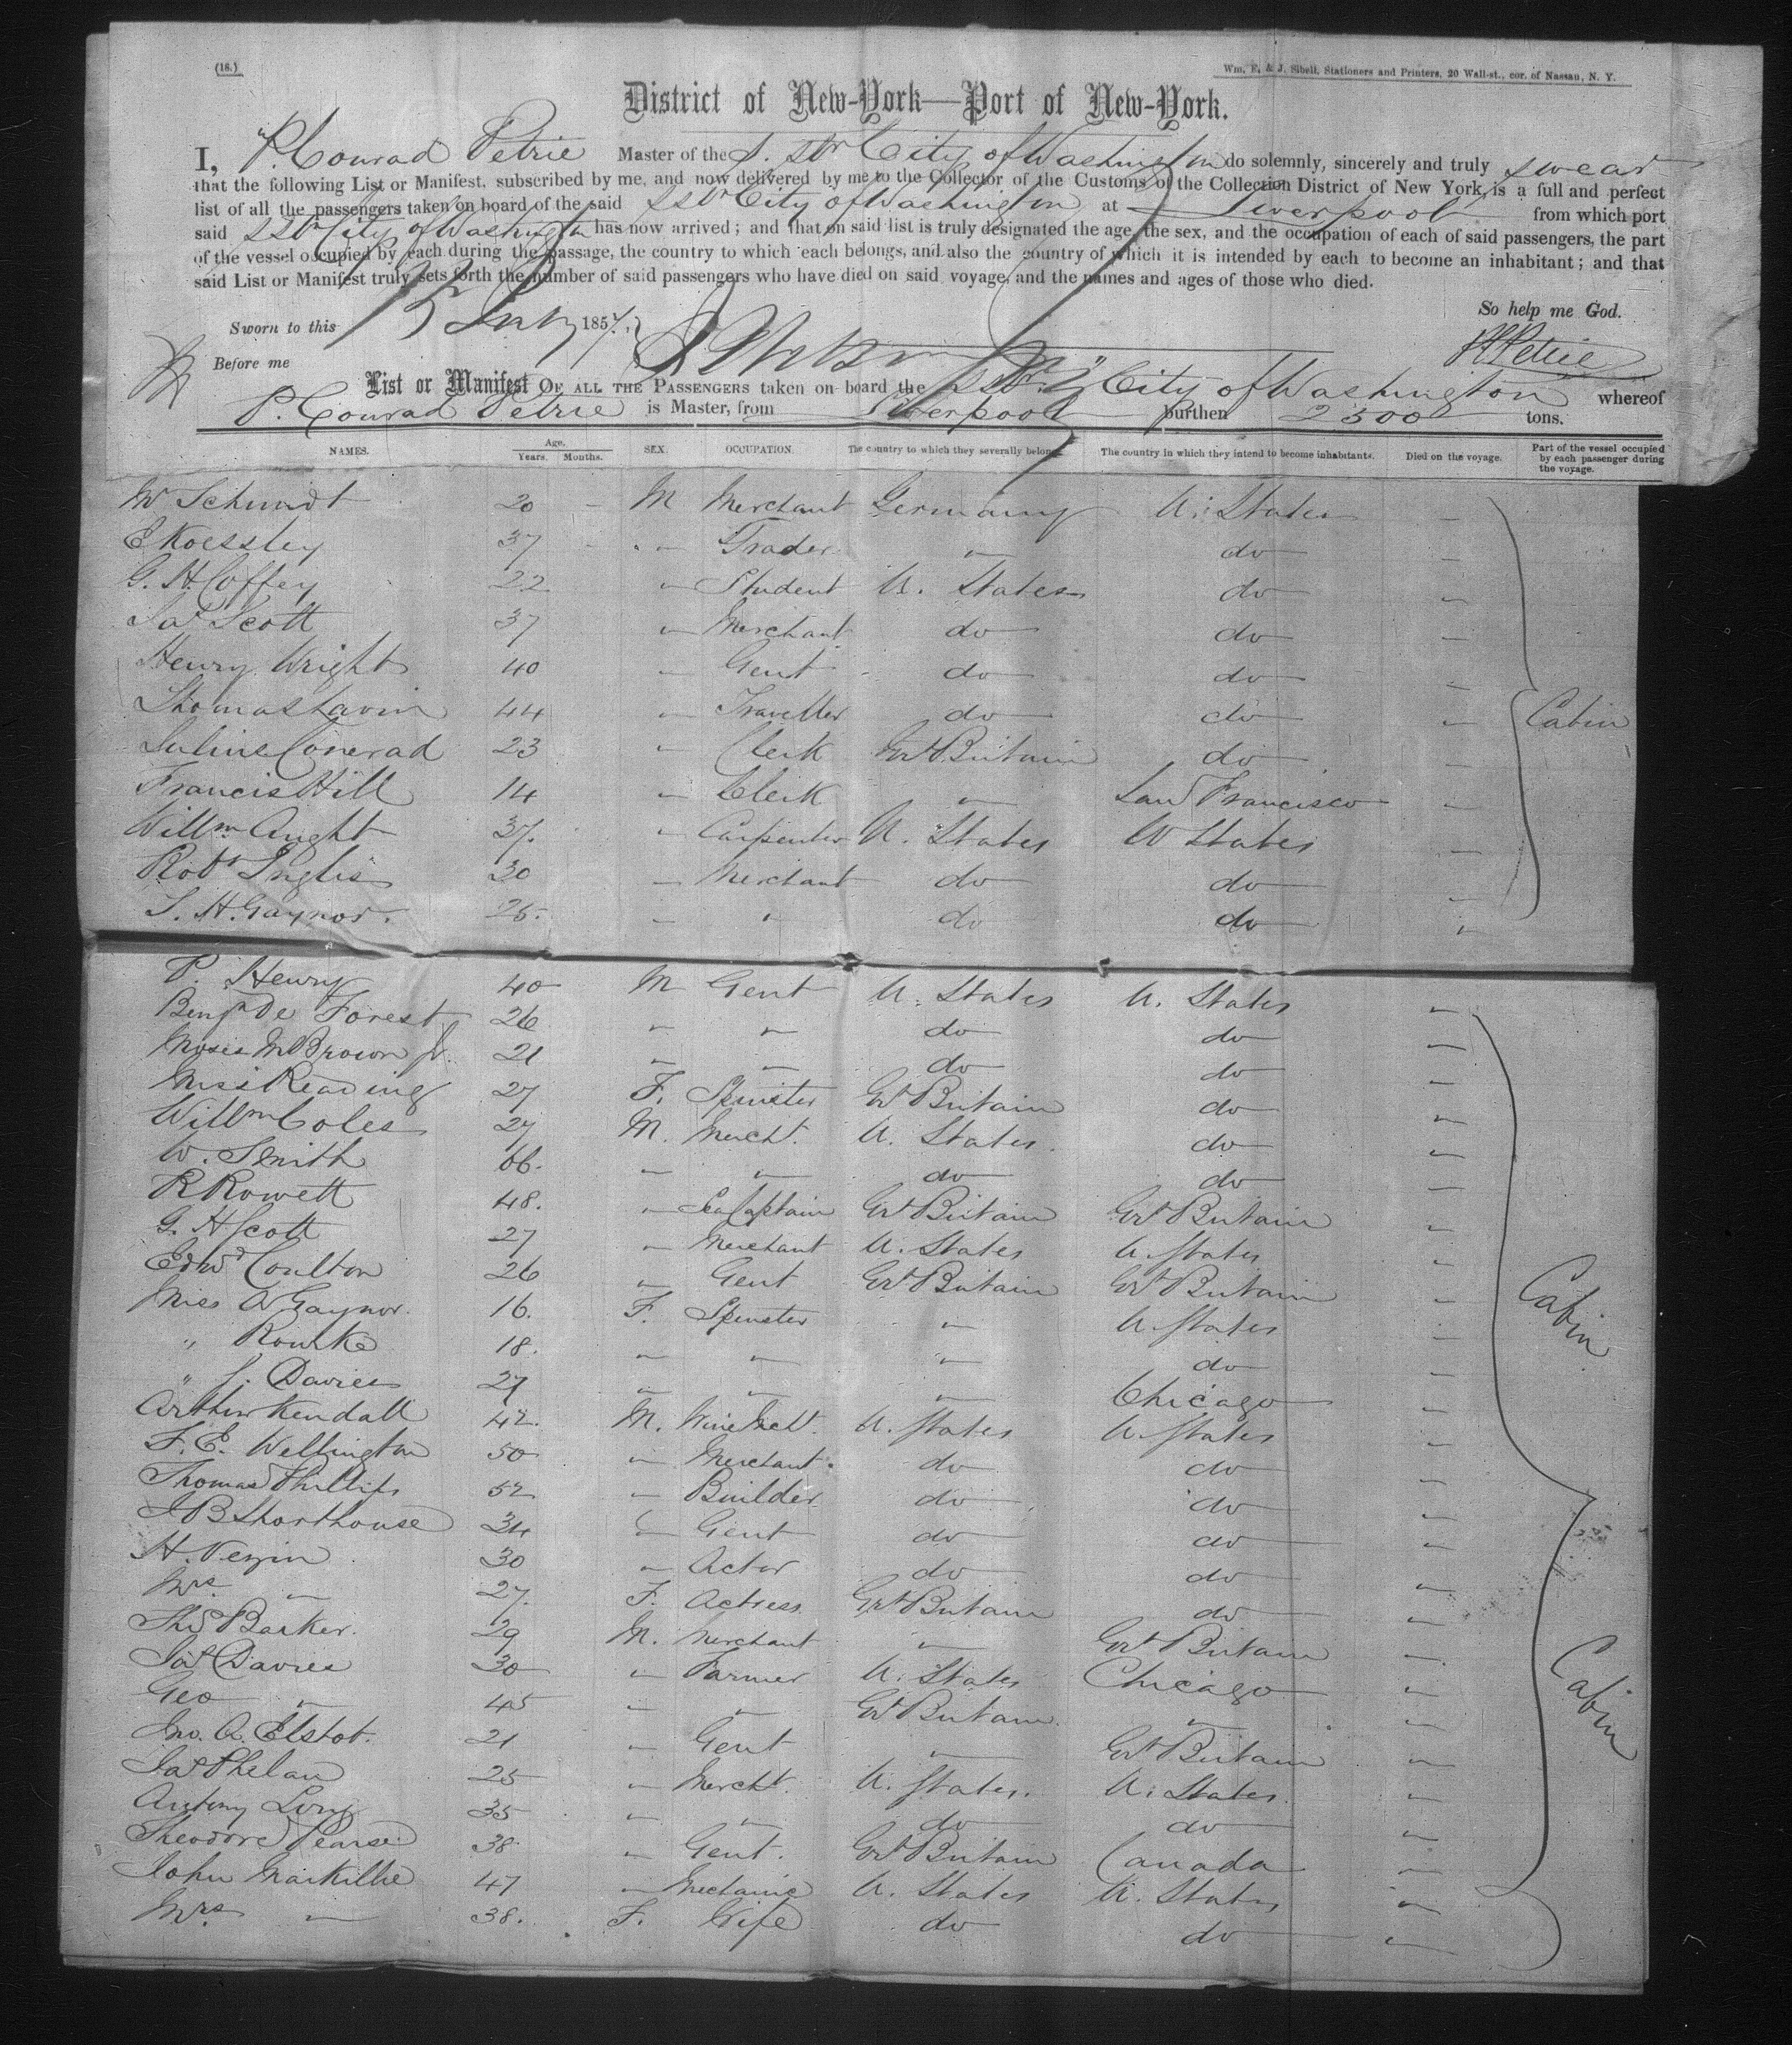 (18.)
Wm. E. & J. Sibell, Stationers and Printers, 20 Wall-st., cor. of Nassau, N. Y.
District of New-York—Port of New-York.
I, P. Conrad Petrie Master of the S. Str City of Washington do solemnly, sincerely and truly swear
that the following List or Manifest, subscribed by me, and now delivered by me to the Collector of the Customs of the Collection District of New York, is a full and perfect
list of all the passengers taken on board of the said S Str City of Washington at Liverpool from which port
said S Str City of Washington has now arrived; and that on said list is truly designated the age, the sex, and the occupation of each of said passengers, the part
of the vessel occupied by each during the passage, the country to which each belongs, and also the country of which it is intended by each to become an inhabitant; and that
said List or Manifest truly sets forth the number of said passengers who have died on said voyage, and the names and ages of those who died.
So help me God.
Sworn to this 1857.
Before me
Petrie
List or Manifest OF ALL THE PASSENGERS taken on board the S Str City of Washington whereof
P. Conrad Petrie is Master, from Liverpool burthen 2500 tons.
NAMES. Age. Years. Months. SEX. OCCUPATION. The country to which they severally belong. The country in which they intend to become inhabitants. Died on the voyage. Part of the vessel occupied by each passenger during the voyage.
Mr Schmidt 20 – M Merchant Germany U. States –
E Koessley 37 – " Trader " do –
G. H. Coffey 22 " Student U. States do "
Jas Scott 37 " Merchant do do –
Henry Wright 40 " Gent do do –
Thomas Lavin 44 " Traveller do do " Cabin
Julius Conerad 23 " Clerk Grt Britain do
Francis Hill 14 " Clerk " San Francisco –
Willm Aught 37. " Carpenter U. States U States –
Robt Inglis 30 " Merchant do do –
T. H. Gaynor. 25. " " do do "
P. Henry 40 M Gent U. States U. States "
Benjn De Forest 26 " " do do "
Moses M Brown Jr. 21 " " do do "
Miss Reading 27 F. Spinster Grt Britain do "
Willm Coles 27 M. Mercht. U. States. do "
W. Smith 66. " " do do "
R Rowett 48. " Sea Captain Grt Britain Grt Britain "
G. H Scott 27 " Merchant U. States U. States "
Edwd Coulton 26 " Gent Grt Britain Grt Britain " Cabin
Miss A Gaynor. 16. F. Spinster " U. States "
" Rourke 18. " " " do "
" J. Davies 27 " " " Chicago "
Arthur Kendall 42. M. Wine Mcht. U. States U. States "
F. E. Wellington 50 " Merchant. do do "
Thomas Phillips 52 " Builder do do "
J B Shorthouse 34 " Gent do do "
H. Vezin 30 " Actor do do "
Mrs. " 27. F. Actress Grt Britain do "
Thos Barker. 29 M. Merchant " Grt Britain "
Jas Davies 30 " Farmer U. States Chicago " Cabin
Geo " 45 " " Grt Britain. " "
Jno. A. Elstob. 21 " Gent " Grt Britain "
Jas Phelan 25 " Mercht. U. States. U. States. "
Antony Long 35 " " do do "
Theodore Pearse 38 " Gent. Grt Britain Canada "
John Markillie 47 " Mechanic U. States U. States "
Mrs " 38. F. Wife do do "